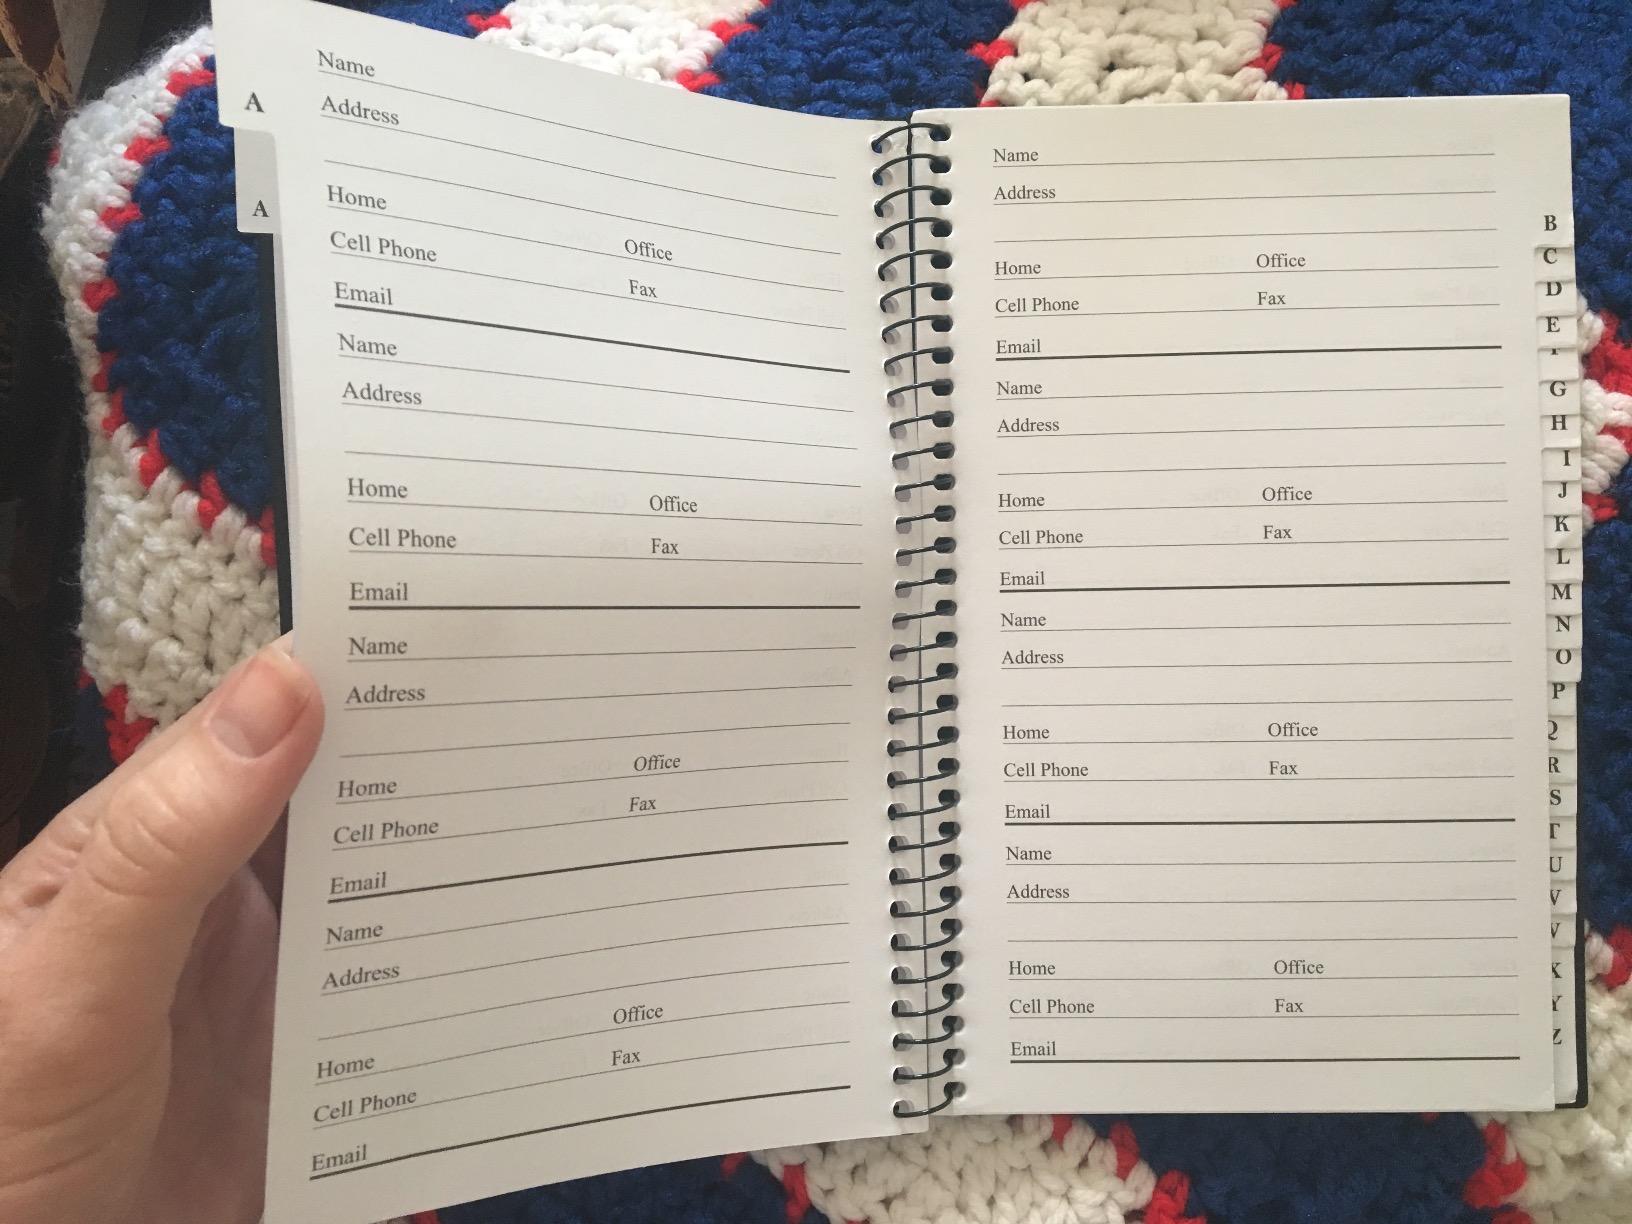 A
A
Name
Address
Home
Cell Phone Office
Email Fax
Name
Address
Home Office
Cell Phone Fax
Email
Name
Address
Home Office
Cell Phone Fax
Email
Name
Address
Home Office
Cell Phone Fax
Email
Name
Address
Home Office
Cell Phone Fax
Email
Name
Address
Home Office
Cell Phone Fax
Email
Name
Address
Home Office
Cell Phone Fax
Email
Name
Address
Home Office
Cell Phone Fax
Email
B
C
D
E
G
H
I
J
K
L
M
N
O
P
Q
R
S
T
U
V
X
Y
Z